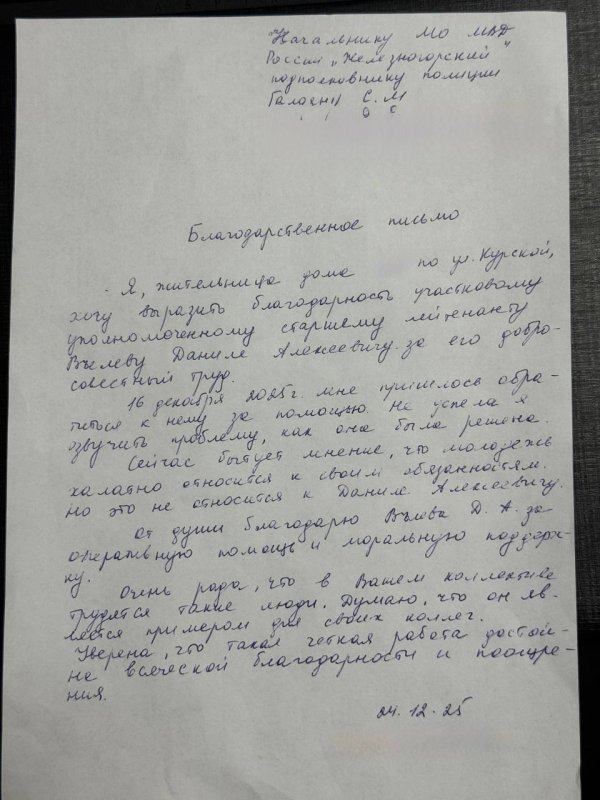 Начальнику МО МВД
России "Железногорский"
подполковнику полиции
С.М
Благодарственное письмо
Я, жительница дома по ул. Курской,
хочу выразить благодарность участковому
уполномоченному старшему лейтенанту
Вълеву Даниле Алексеевичу за его добро-
совестный труд.
16 декабря 2025г. мне пришлось обра-
титься к нему за помощью. Не успела я
озвучить проблему, как она была решена.
Сейчас бытует мнение, что молодежь
халатно относится к своим обязанностям.
Но это не относится к Даниле Алексеевичу.
От души благодарю Вълева Д. А. за
оперативную помощь и моральную поддерж-
ку.
Очень рада, что в Вашем коллективе
трудятся такие люди. Думаю, что он яв-
ляется примером для своих коллег.
Уверена, что такая четкая работа достой-
на всяческой благодарности и поощре-
ния.
24.12.25